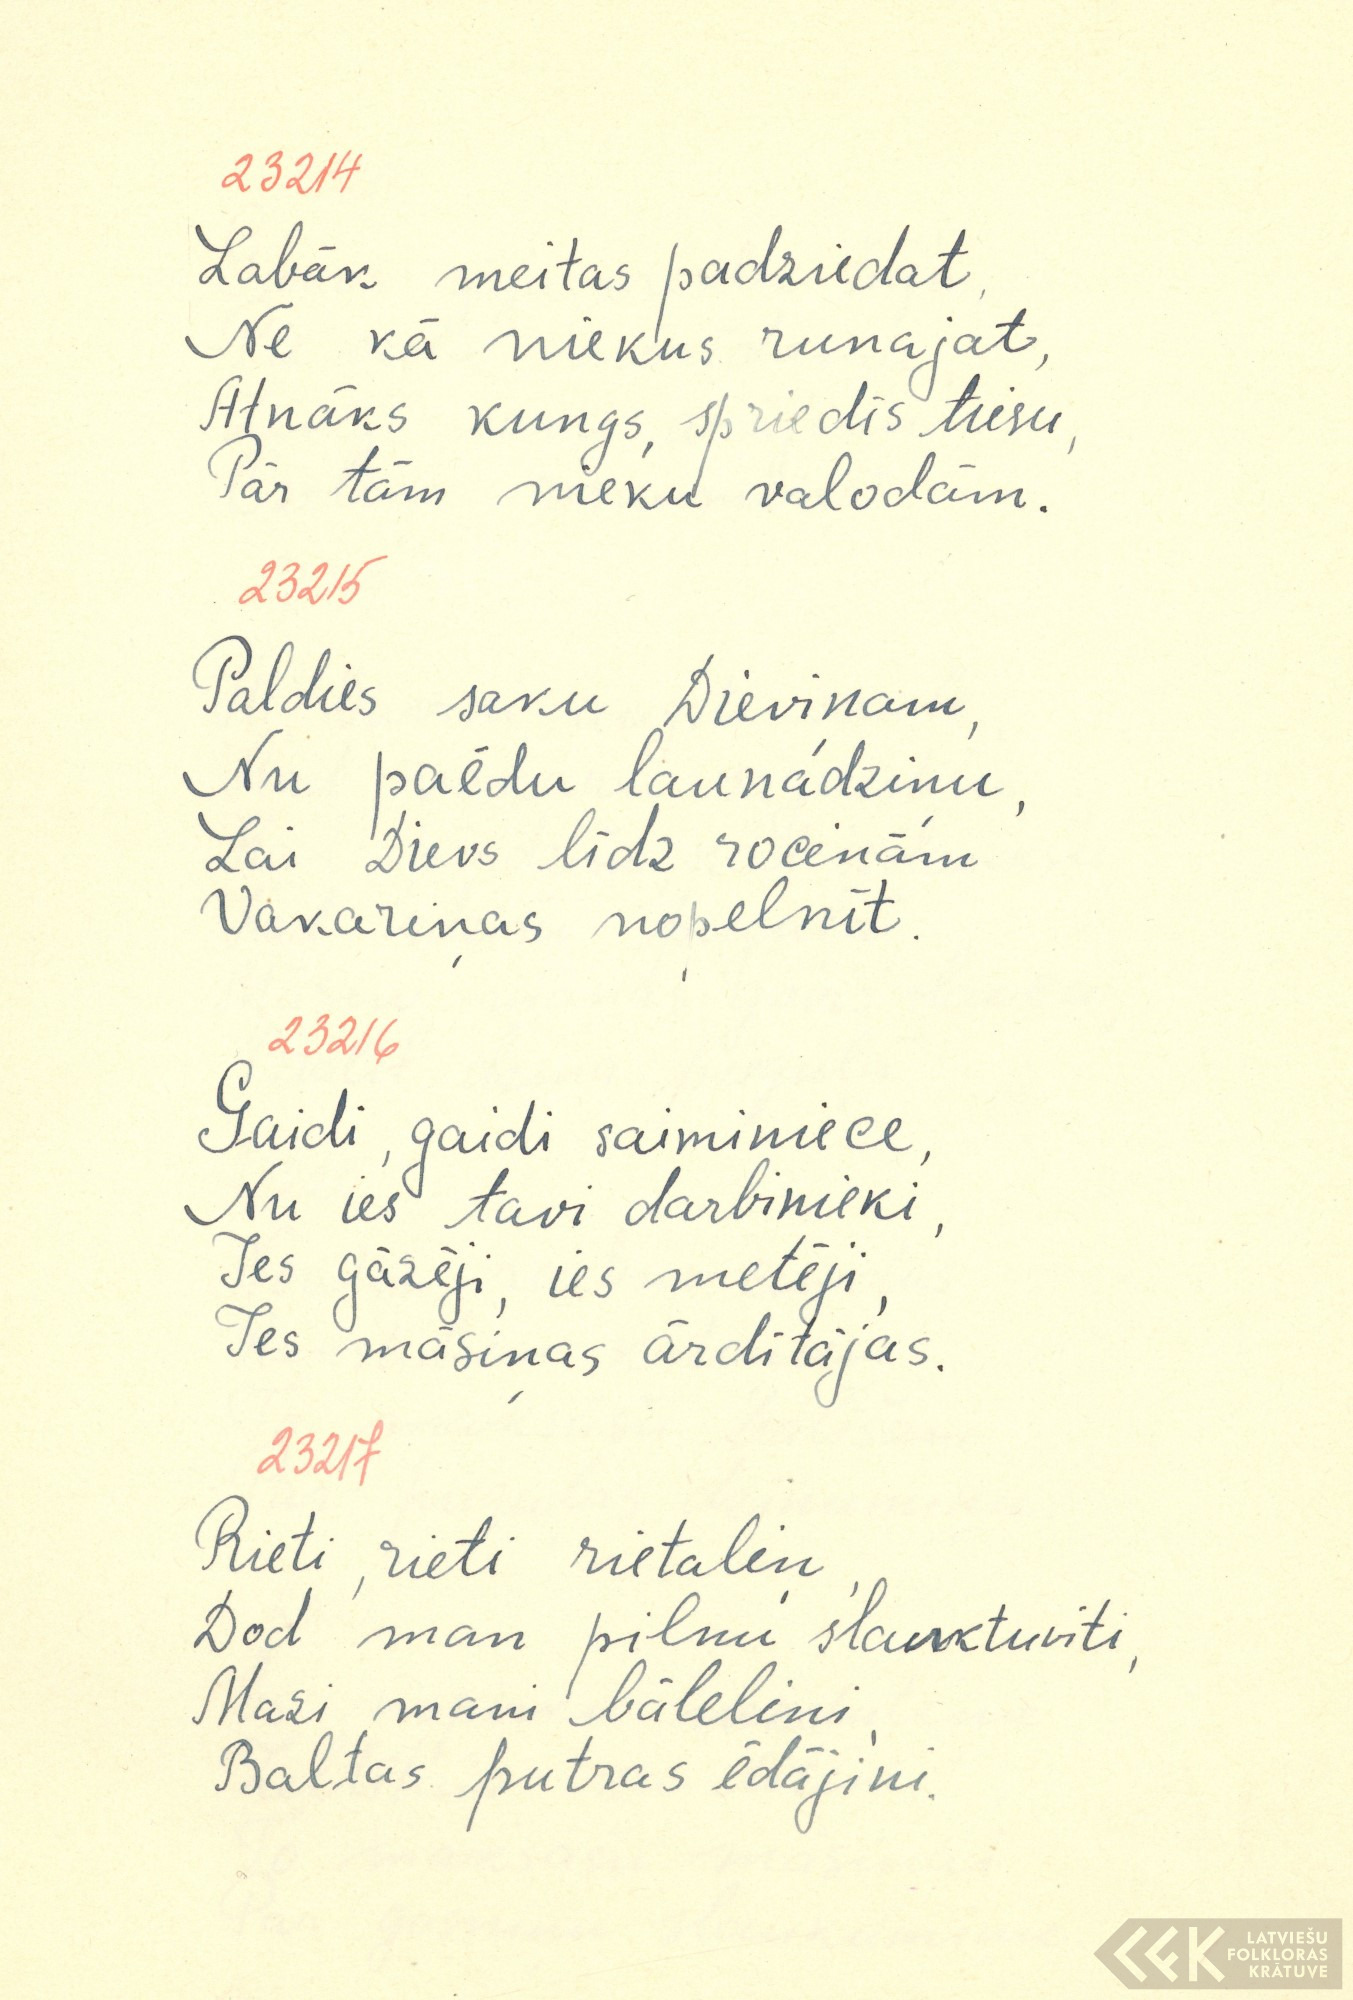 23214
Labāk meitas padziedat,
Ne kā niekus runajat,
Atnāks kungs, spriedīs tiesu,
Pār tām nieku valodām.
23215
Paldies saku Dieviņam,
Nu paēdu launádziņu,
Lai Dievs līdz rociņām
Vakariņas nopelnīt.
23216
Gaidi, gaidi saiminiece,
Nu ies tavi darbinieki,
Ies gāzēji, ies metēji,
Ies māsiņas ārdītājas.
23217
Rieti, rieti rietaliņ,
Dod man pilnu slauktuviti,
Mazi mani bāleliņi,
Baltas putras ēdājiņi.
LATVIEŠU
FOLKLORAS
KRĀTUVE